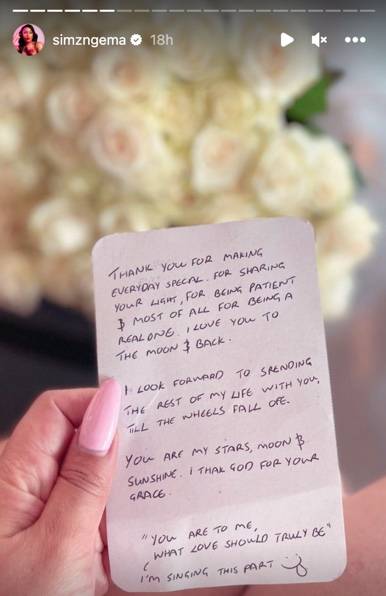 simzngema 18h
THANK YOU FOR MAKING
EVERYDAY SPECIAL. FOR SHARING
YOUR LIGHT, FOR BEING PATIENT
& MOST OF ALL FOR BEING A
REAL ONE. I LOVE YOU TO
THE MOON & BACK.
I LOOK FORWARD TO SPENDING
THE REST OF MY LIFE WITH YOU,
TILL THE WHEELS FALL OFF.
YOU ARE MY STARS, MOON &
SUNSHINE. I THAK GOD FOR YOUR
GRACE.
"YOU ARE TO ME,
WHAT LOVE SHOULD TRULY BE"
(I'M SINGING THIS PART